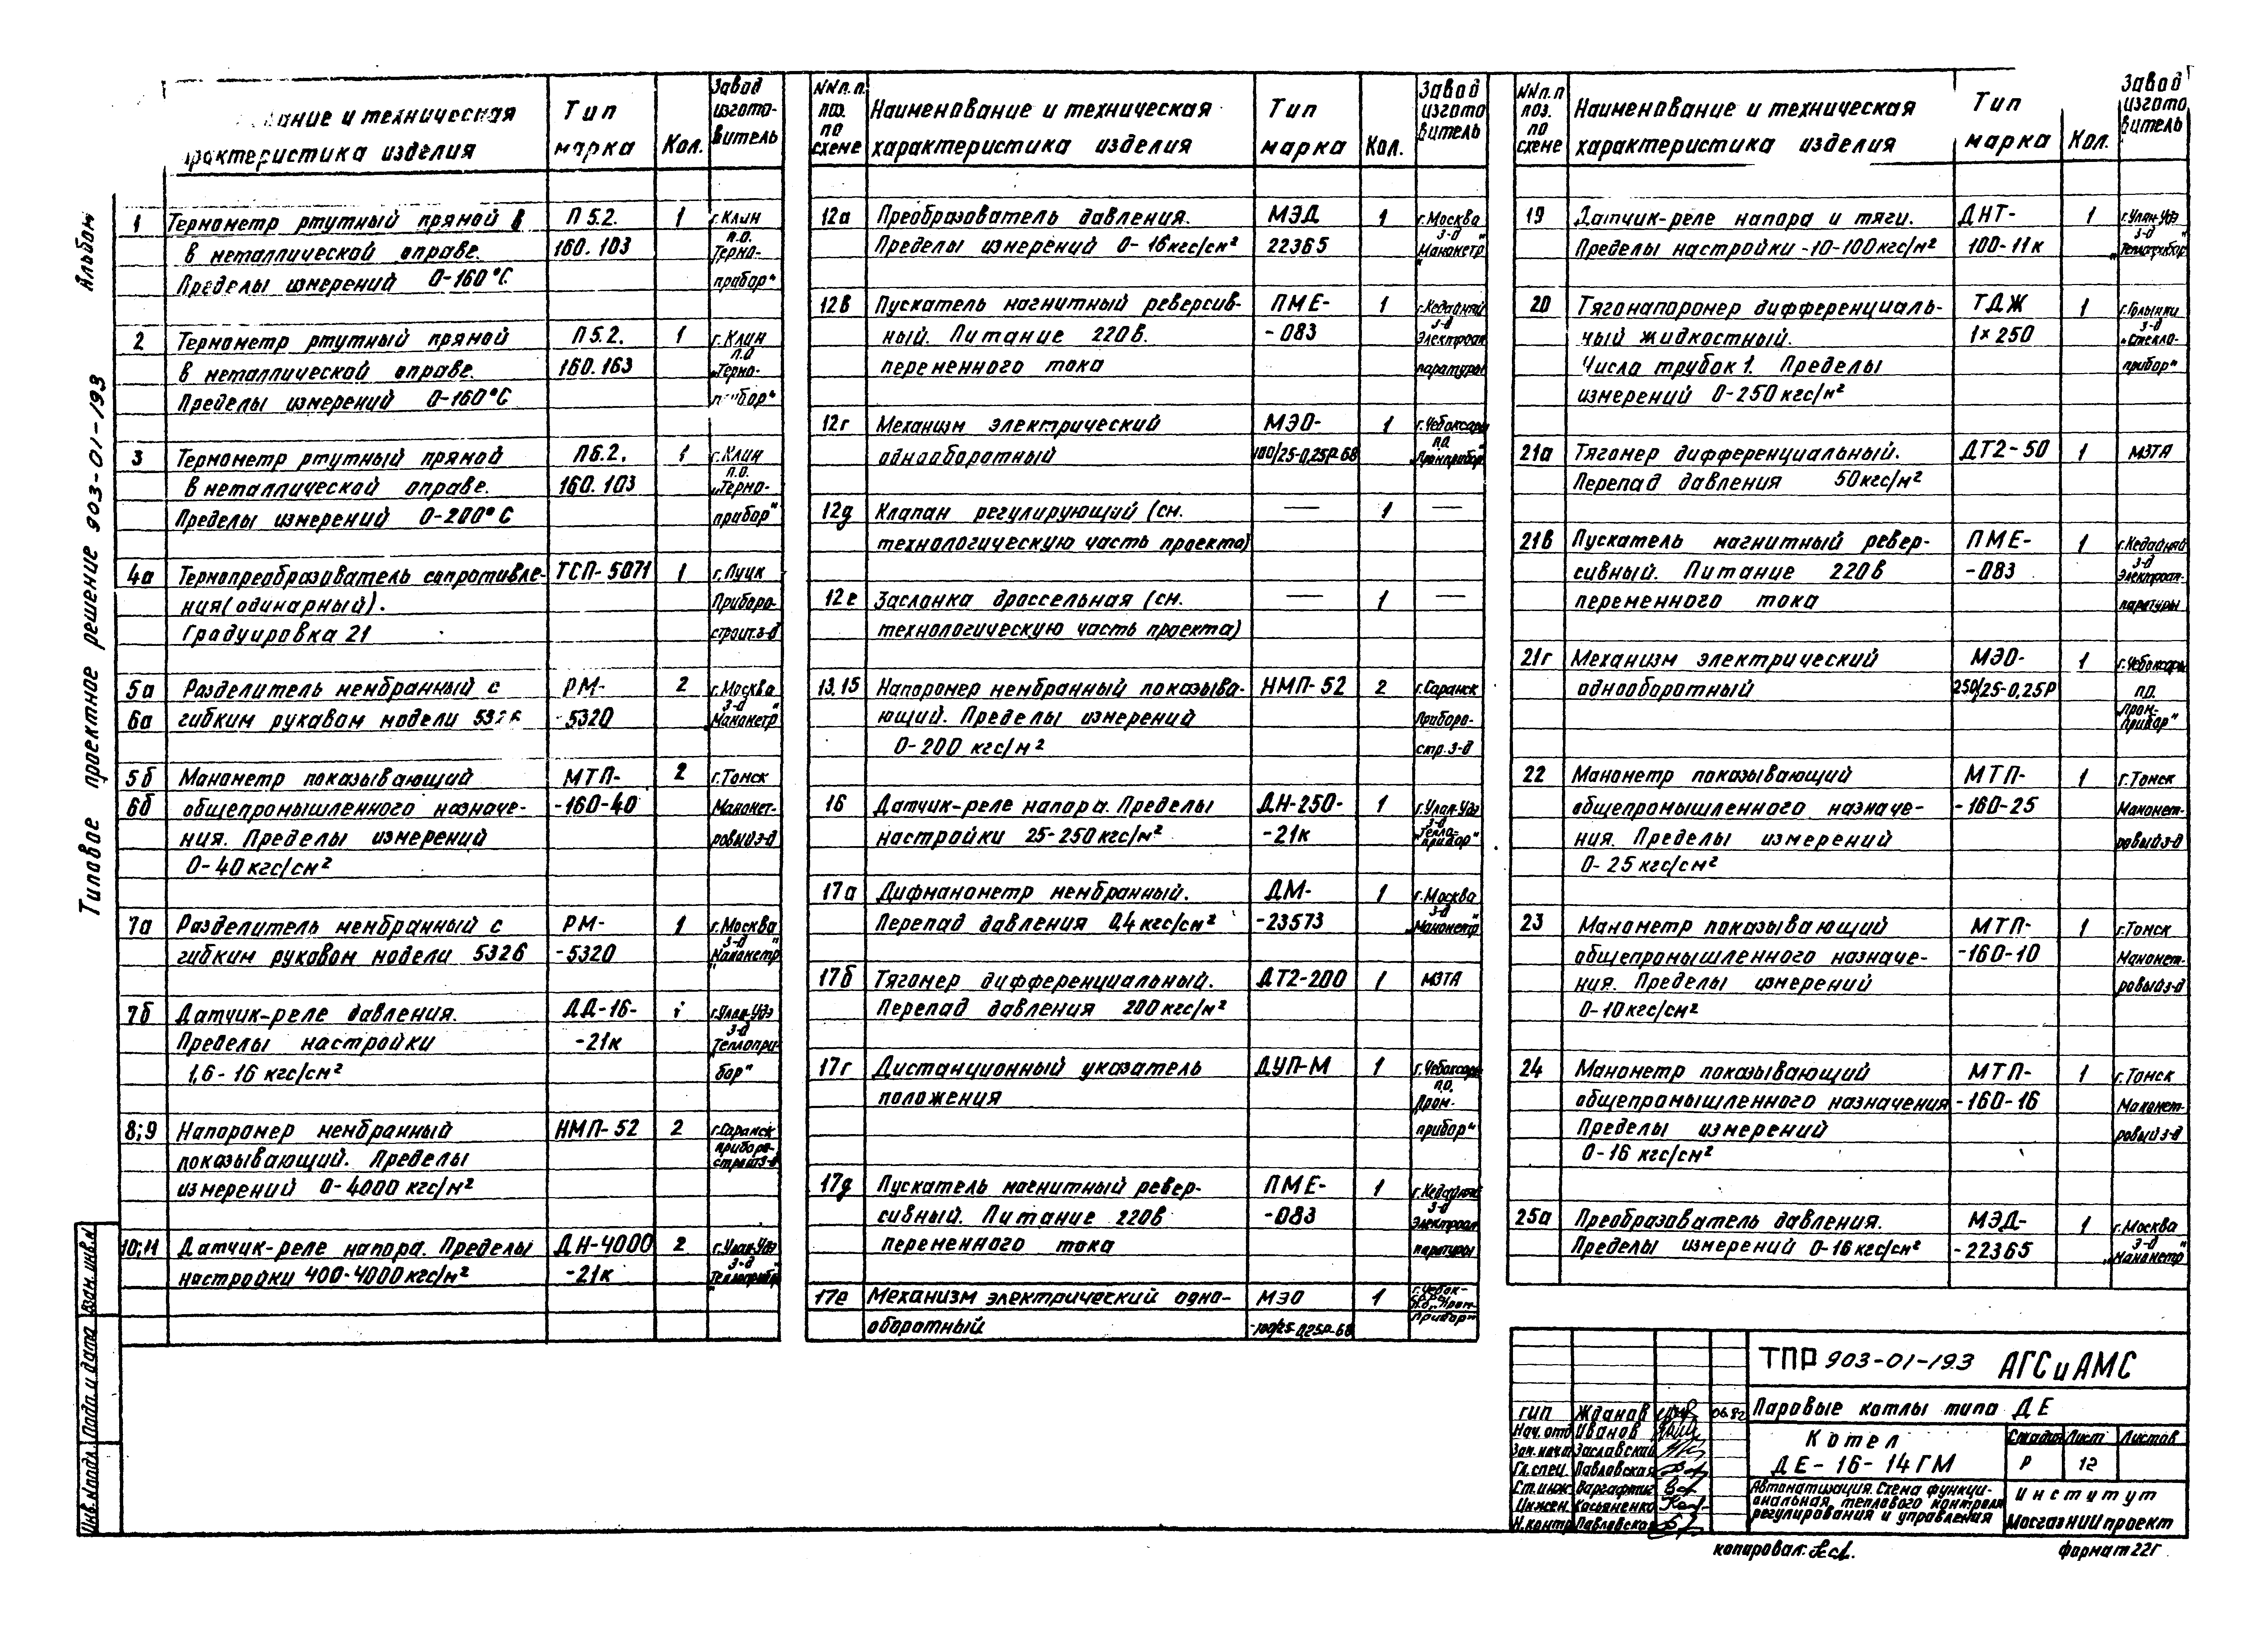 Альбом
Типовое проектное решение 903-01-193
ание и техническая
рактеристика изделия
Тип
марка
Кол.
Завод
изгото-
витель
1 Термометр ртутный прямой в П 5.2. 1 г.Клин
в металлической оправе. 160.103 п.о.
Термо-
Пределы измерений 0-160°С. прибор"
2 Термометр ртутный прямой П5.2. 1 г.Клин
в металлической оправе. 160.163 п.о
„Термо-
Пределы измерений 0-160°С
3 Термометр ртутный прямой П6.2. 1 г.Клин
в металлической оправе. 160.103 п.о.
„Термо-
Пределы измерений 0-200°С прибор"
4а Термопреобразиватель сопротивле- ТСП-5071 1 г.Луцк
ния(одинарный). Приборо-
Градуировка 21 строит.з-д
5а Разделитель мембранный с РМ- 2 г.Москва
6а гибким рукавом модели 5326 -5320 з-д
„Манометр"
5б Манометр показывающий МТП- 2 г.Томск
6б общепромышленного назначе- -160-40 Маномет-
ния. Пределы измерений ровый з-д
0-40кгс/см²
7а Разделитель мембранный с РМ- 1 г.Москва
гибким рукавом модели 5326 -5320 з-д
„Манометр"
7б Датчик-реле давления. ДД-16- 1 г.Улан-Удэ
Пределы настройки -21к з-д
„Теплопри-
1,6-16 кгс/см² бор"
8;9 Напоромер мембранный НМП-52 2 г.Саранск
показывающий. Пределы приборо-
строит.з-д
измерений 0-4000 кгс/м²
10;11 Датчик-реле напора. Пределы ДН-4000 2 г.Улан-Удэ
настройки 400-4000кгс/м² -21к з-д
„Теплоприбор"
NNп.п.
поз.
по
схеме
Наименование и техническая
характеристика изделия
Тип
марка
Кол.
Завод
изгото
витель
12а Преобразователь давления. МЭД 1 г.Москва
Пределы измерений 0-16кгс/см² 22365 з-д
„Манометр"
12в Пускатель магнитный реверсив- ПМЕ- 1 г.Кедайняй
ный. Питание 220в. -083 з-д
Электроап
переменного тока паратуры
12г Механизм электрический МЭО- 1 г.Чебоксары
однооборотный 100/25-0,25Р-68 п.о.
„Промприбор"
12д Клапан регулирующий (см. — 1 —
технологическую часть проекта)
12е Заслонка дроссельная (см. — 1 —
технологическую часть проекта)
13,15 Напоромер мембранный показыва- НМП-52 2 г.Саранск
ющий. Пределы измерений Приборо-
0-200 кгс/м² стр.з-д
16 Датчик-реле напора. Пределы ДН-250- 1 г.Улан-Удэ
настройки 25-250кгс/м² -21к з-д
„Тепло-
прибор"
17а Дифманометр мембранный. ДМ- 1 г.Москва
Перепад давления 0,4кгс/см² -23573 з-д
„Манометр"
17б Тягомер дифференциальный. ДТ2-200 1 МЗТА
Перепад давления 200кгс/м²
17г Дистанционный указатель ДУП-М 1 г.Чебоксары
положения п.о.
„Пром-
прибор"
17д Пускатель магнитный ревер- ПМЕ- 1 г.Кедайняй
сивный. Питание 220в -083 з-д
Электроап
переменного тока паратуры
17е Механизм электрический одно- МЭО 1 г.Чебок-
сары
п.о.„Пром-
оборотный -100/25-0,25Р-68 прибор"
NNп.п
поз.
по
схеме
Наименование и техническая
характеристика изделия
Тип
марка
Кол.
Завод
изгото
витель
19 Датчик-реле напора и тяги. ДНТ- 1 г.Улан-Удэ
Пределы настройки -10-100кгс/м² 100-11к з-д
„Теплоприбор"
20 Тягонапоромер дифференциаль- ТДЖ 1 г.Голынки
ный жидкостный. 1×250 з-д
„Стекло-
Числа трубок 1. Пределы прибор"
измерений 0-250кгс/м²
21а Тягомер дифференциальный. ДТ2-50 1 МЗТА
Перепад давления 50кгс/м²
21в Пускатель магнитный ревер- ПМЕ- 1 г.Кедайняй
сивный. Питание 220в -083 з-д
Электроап-
переменного тока паратуры
21г Механизм электрический МЭО- 1 г.Чебоксары
однооборотный 250/25-0,25Р п.о.
„Пром-
прибор"
22 Манометр показывающий МТП- 1 г.Томск
общепромышленного назначе- -160-25 Маномет-
ния. Пределы измерений ровый з-д
0-25кгс/см²
23 Манометр показывающий МТП- 1 г.Томск
общепромышленного назначе- -160-10 Маномет-
ния. Пределы измерений ровый з-д
0-10кгс/см²
24 Манометр показывающий МТП- 1 г.Томск
общепромышленного назначения -160-16 Маномет-
Пределы измерений ровый з-д
0-16 кгс/см²
25а Преобразователь давления. МЭД- 1 г.Москва
Пределы измерений 0-16кгс/см² -22365 з-д
„Манометр"
Взам.инв.N
Подп и дата
Инв.Nподл.
ТПР 903-01-193 АГС и АМС
Паровые котлы типа ДЕ
ГИП Жданов 06.82
Нач.отд Иванов
Зам.нача Заславский
Гл.спец. Павловская
Ст.инж Варгафтиг
Инжен. Касьяненко
Н.контр Павловская
Котел
ДЕ-16-14ГМ
Стадия Лист Листов
Р 12
Автоматизация. Схема функци-
ональная, теплового контроля
регулирования и управления
институт
МосгазНИИпроект
копировал:
формат 22г